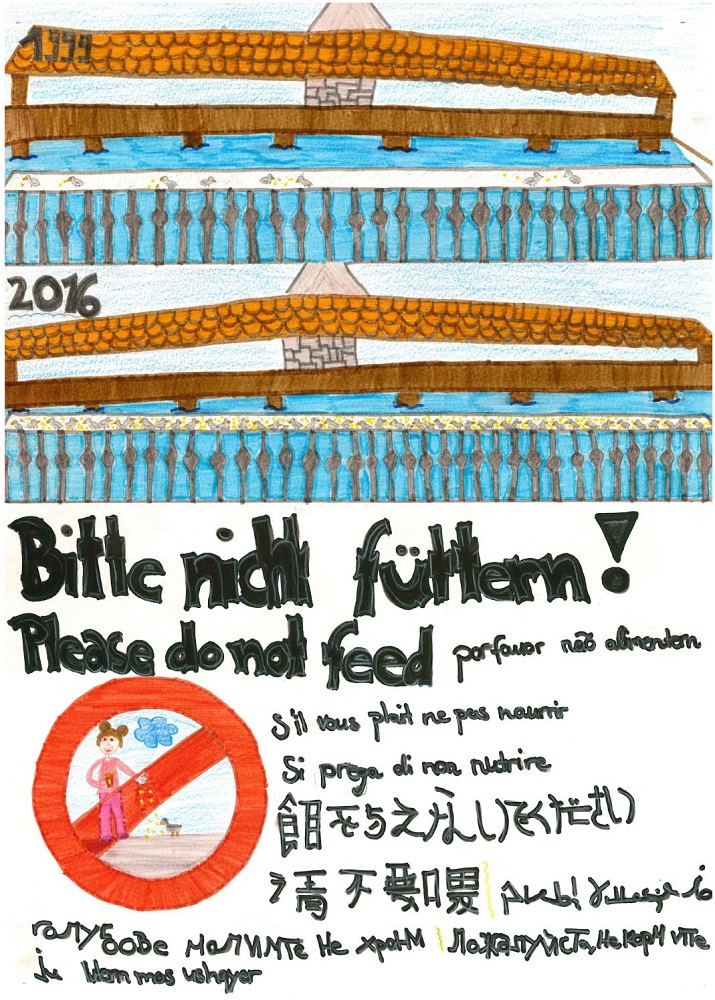 1999
2016
Bitte nicht füttern!
Please do not feed por favor não alimentem
S'il vous plait ne pas nourrir
Si prega di non nutrire
餌を与えないでください
请不要喂
голубове молимте не храним | Пожалуйста, не кормите
ju lutem mos ushqyer